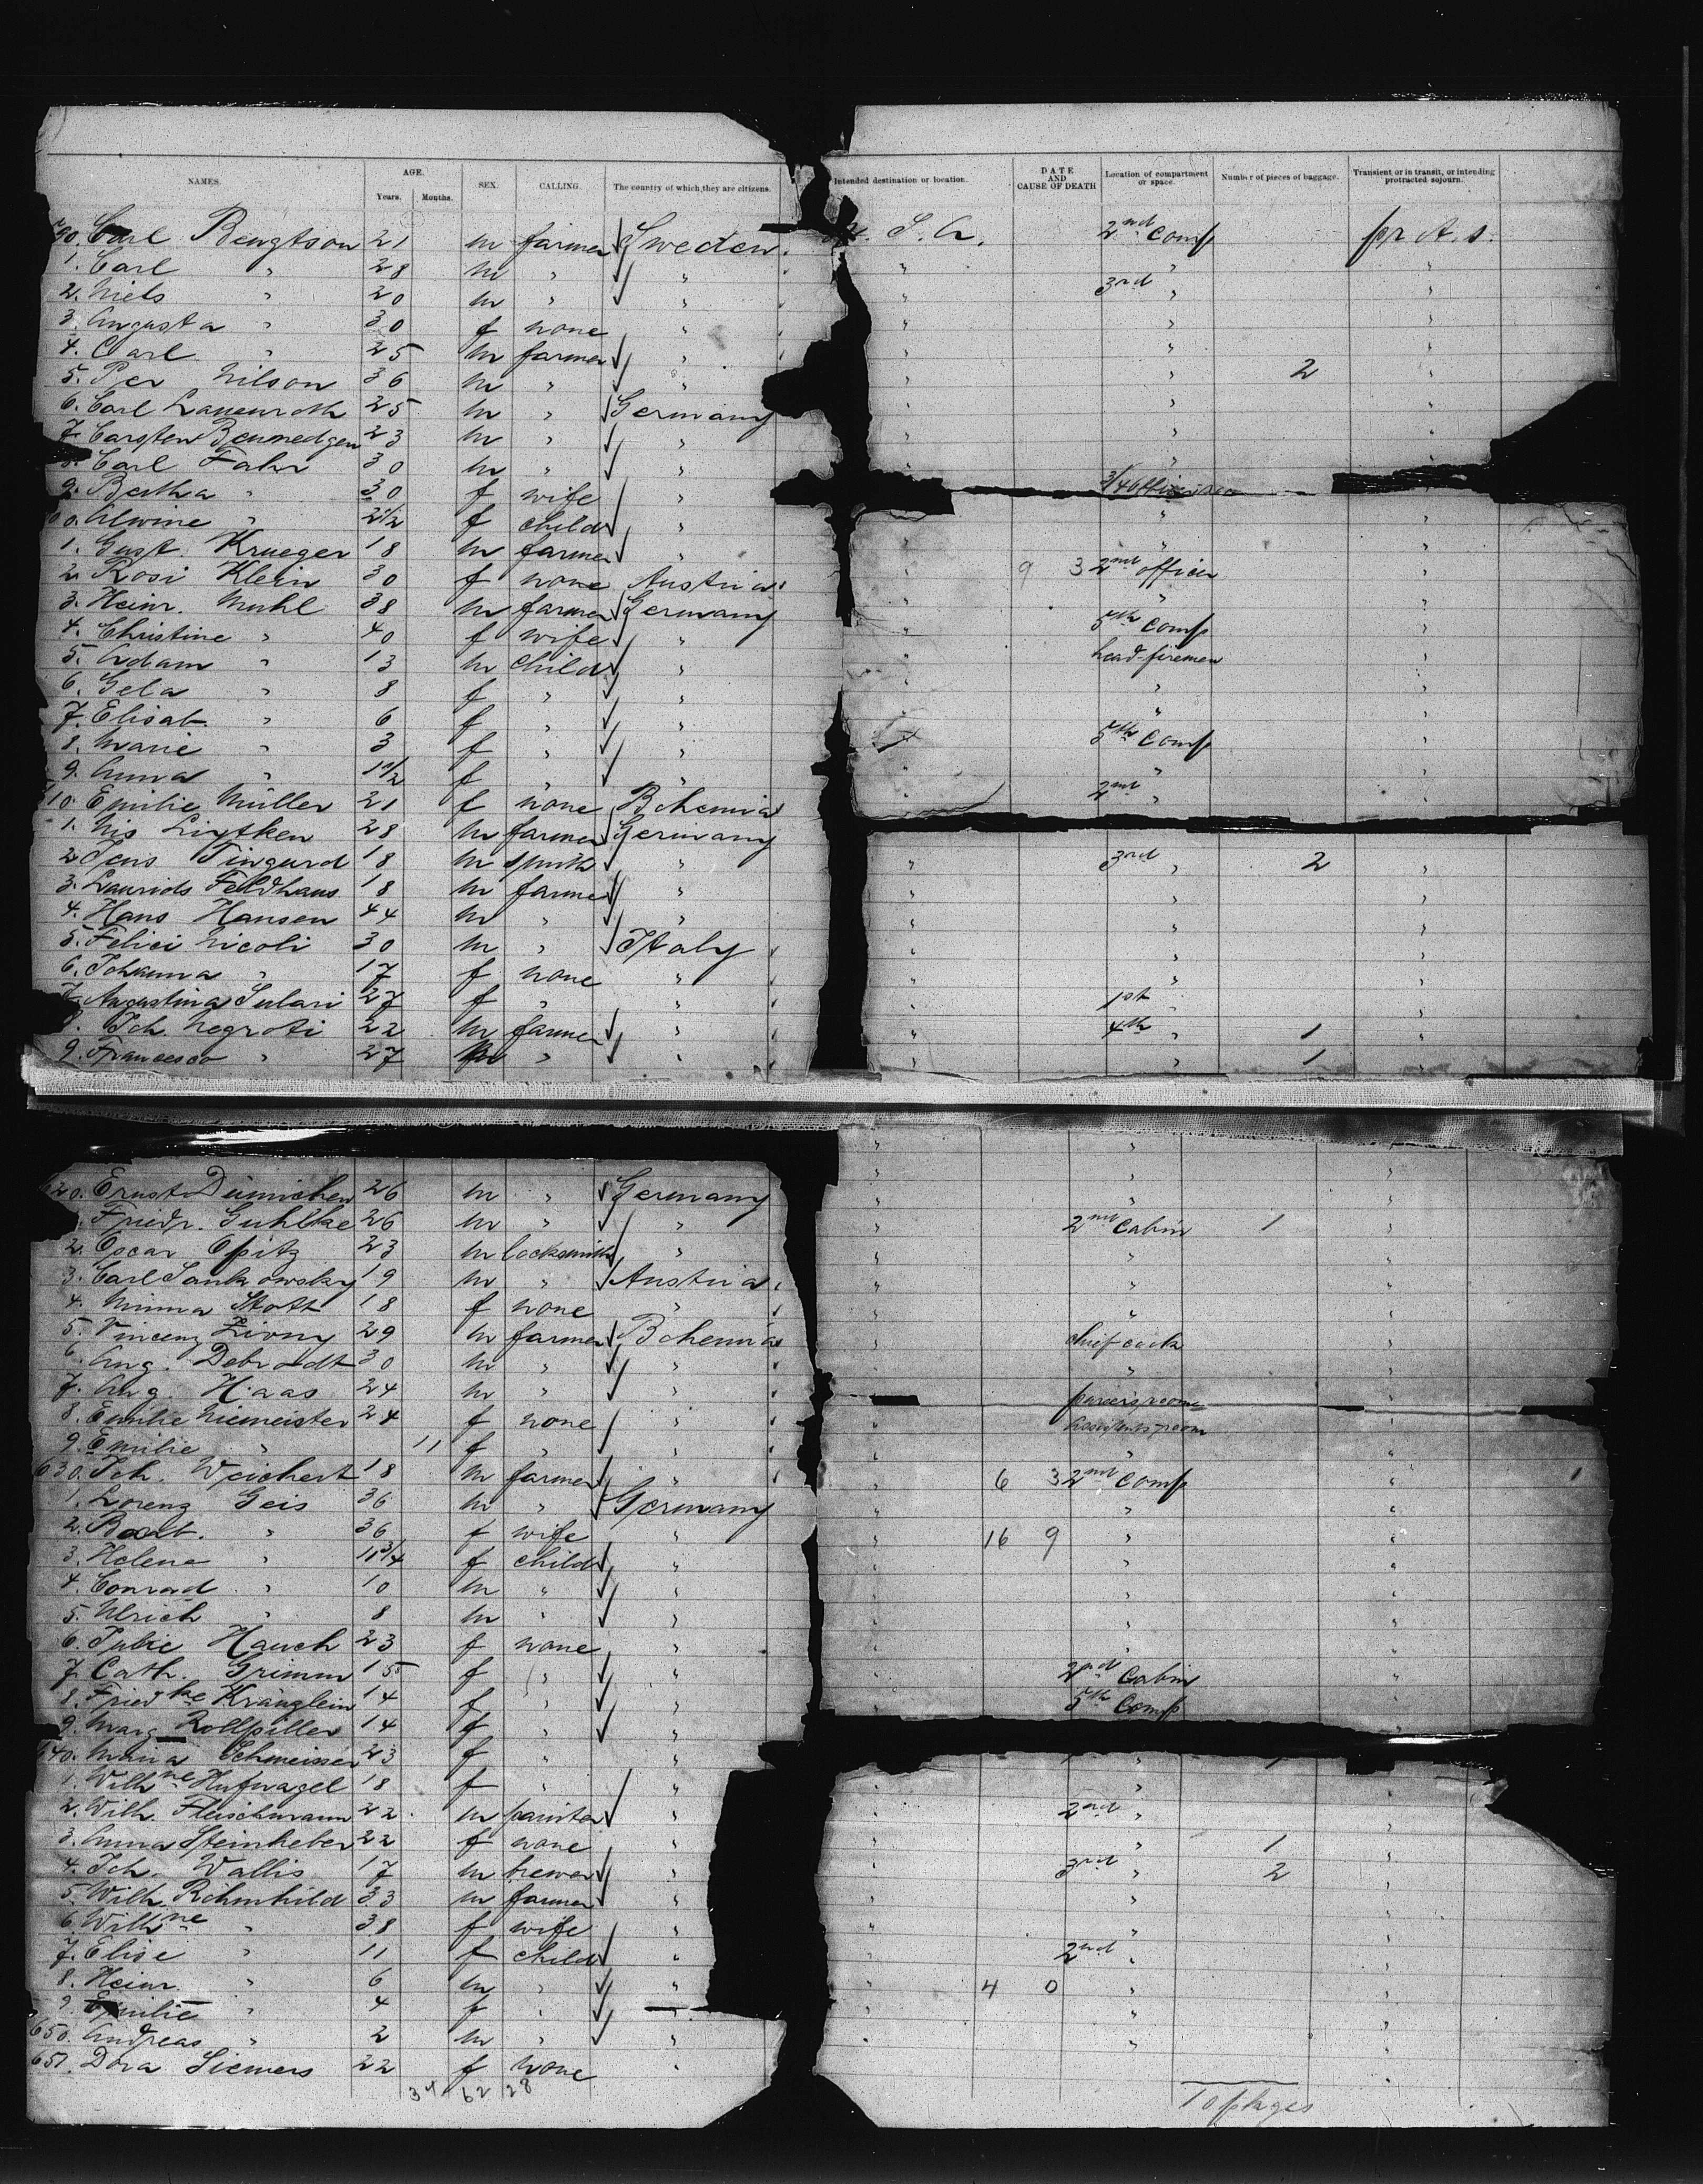 NAMES. AGE. Years. Months. SEX. CALLING. The country of which they are citizens. Intended destination or location. DATE AND CAUSE OF DEATH Location of compartment or space. Number of pieces of baggage. Transient or in transit, or intending protracted sojourn.
90. Carl Bengtson 21 m farmer Sweden. S. A. 2nd Comp
1. Carl " 28 m " " "
2. Niels " 20 m " " " 3rd "
3. Augusta " 30 f none " "
4. Carl " 25 m farmer " "
5. Per Nilson 36 m " " " 2
6. Carl 25 m " Germany "
7. Carsten 23 m " " "
8. Carl Fahr 30 m " " "
9. Bertha " 30 f wife "
00. Alwine " 2 1/2 f child " "
1. Gust. Krueger 18 m farmer " "
2. Rosi Klein 30 f none Austria 9 3 2nd officer
3. Heinr. Muhl 38 m farmer Germany "
4. Christine " 40 f wife " 5th Comp
5. Adam " 13 m child " head firemen
6. Gela " 8 f " " "
7. Elisab. " 6 f " " "
8. Marie " 3 f " " 5th Comp
9. Anna " f " " "
610. Emilie Müller 21 f none Bohemia 2nd "
1. Nis Lytken 28 m farmer Germany
2. Jens Tingurd 18 m smith " " 3rd " 2
3. Laurids Feldhaus 18 m farmer " " "
4. Hans Hansen 44 m " " " "
5. Felici Nicoli 30 m " Italy " "
6. Johanna " 17 f none " " "
7. Augustina Sulari 27 f " " " 1st "
8. Joh. Negroti 22 m farmer " " 4th " 1
9. Francesco " 27 m " " " " 1
620. Ernst Dünnichen 26 m " Germany "
Friedr. Guhlke 26 m " " " 2nd Cabin 1
2. Oscar Opitz 23 m locksmith " " "
3. Carl Sankowsky 19 m " Austria. " "
4. Minna Stoth 18 f none " " "
5. Vincenz Zivny 29 m farmer Bohemia " chief cook
6. Aug. Debrodt 30 m " " " "
7. Aug. Haas 24 m " "
8. Emilie Niemeister 24 f none " "
9. Emilie " 11 f " " "
630. Joh. Weichert 18 m farmer " " 6 3 2nd Comp
1. Lorenz Geis 36 m " Germany " "
2. Barb. " 36 f wife " " 16 9 "
3. Helene " f child " " "
4. Conrad " 10 m " " " "
5. Ulrich " 8 m " " " "
6. Julie Hauch 23 f none " " "
7. Cath. Grimm 15 f " " " 2nd Cabin
8. Friedke Kränzlein 14 f " " " 5th Comp
9. Marg Rollpiller 14 f " "
640. Maria Schmeisser 23 f " " "
1. Wilhne Hufnagel 18 f " " " "
2. Wilh. Fleischmann 22 m painter " " 2nd "
3. Anna Steinheber 22 f none " " " 1
4. Joh. Wallis 17 m brewer " " 3rd " 2
5. Wilh. Röhmhild 33 m farmer " " "
6. Wilhne " 38 f wife " " "
7. Elise " 11 f child " " 2nd "
8. Heinr. " 6 m " " " 4 0 "
9. Emilie " 4 f " " " "
650. Andreas " 2 m " " " "
651. Dora Siemers 22 f none "
34 62 28
10 pkges